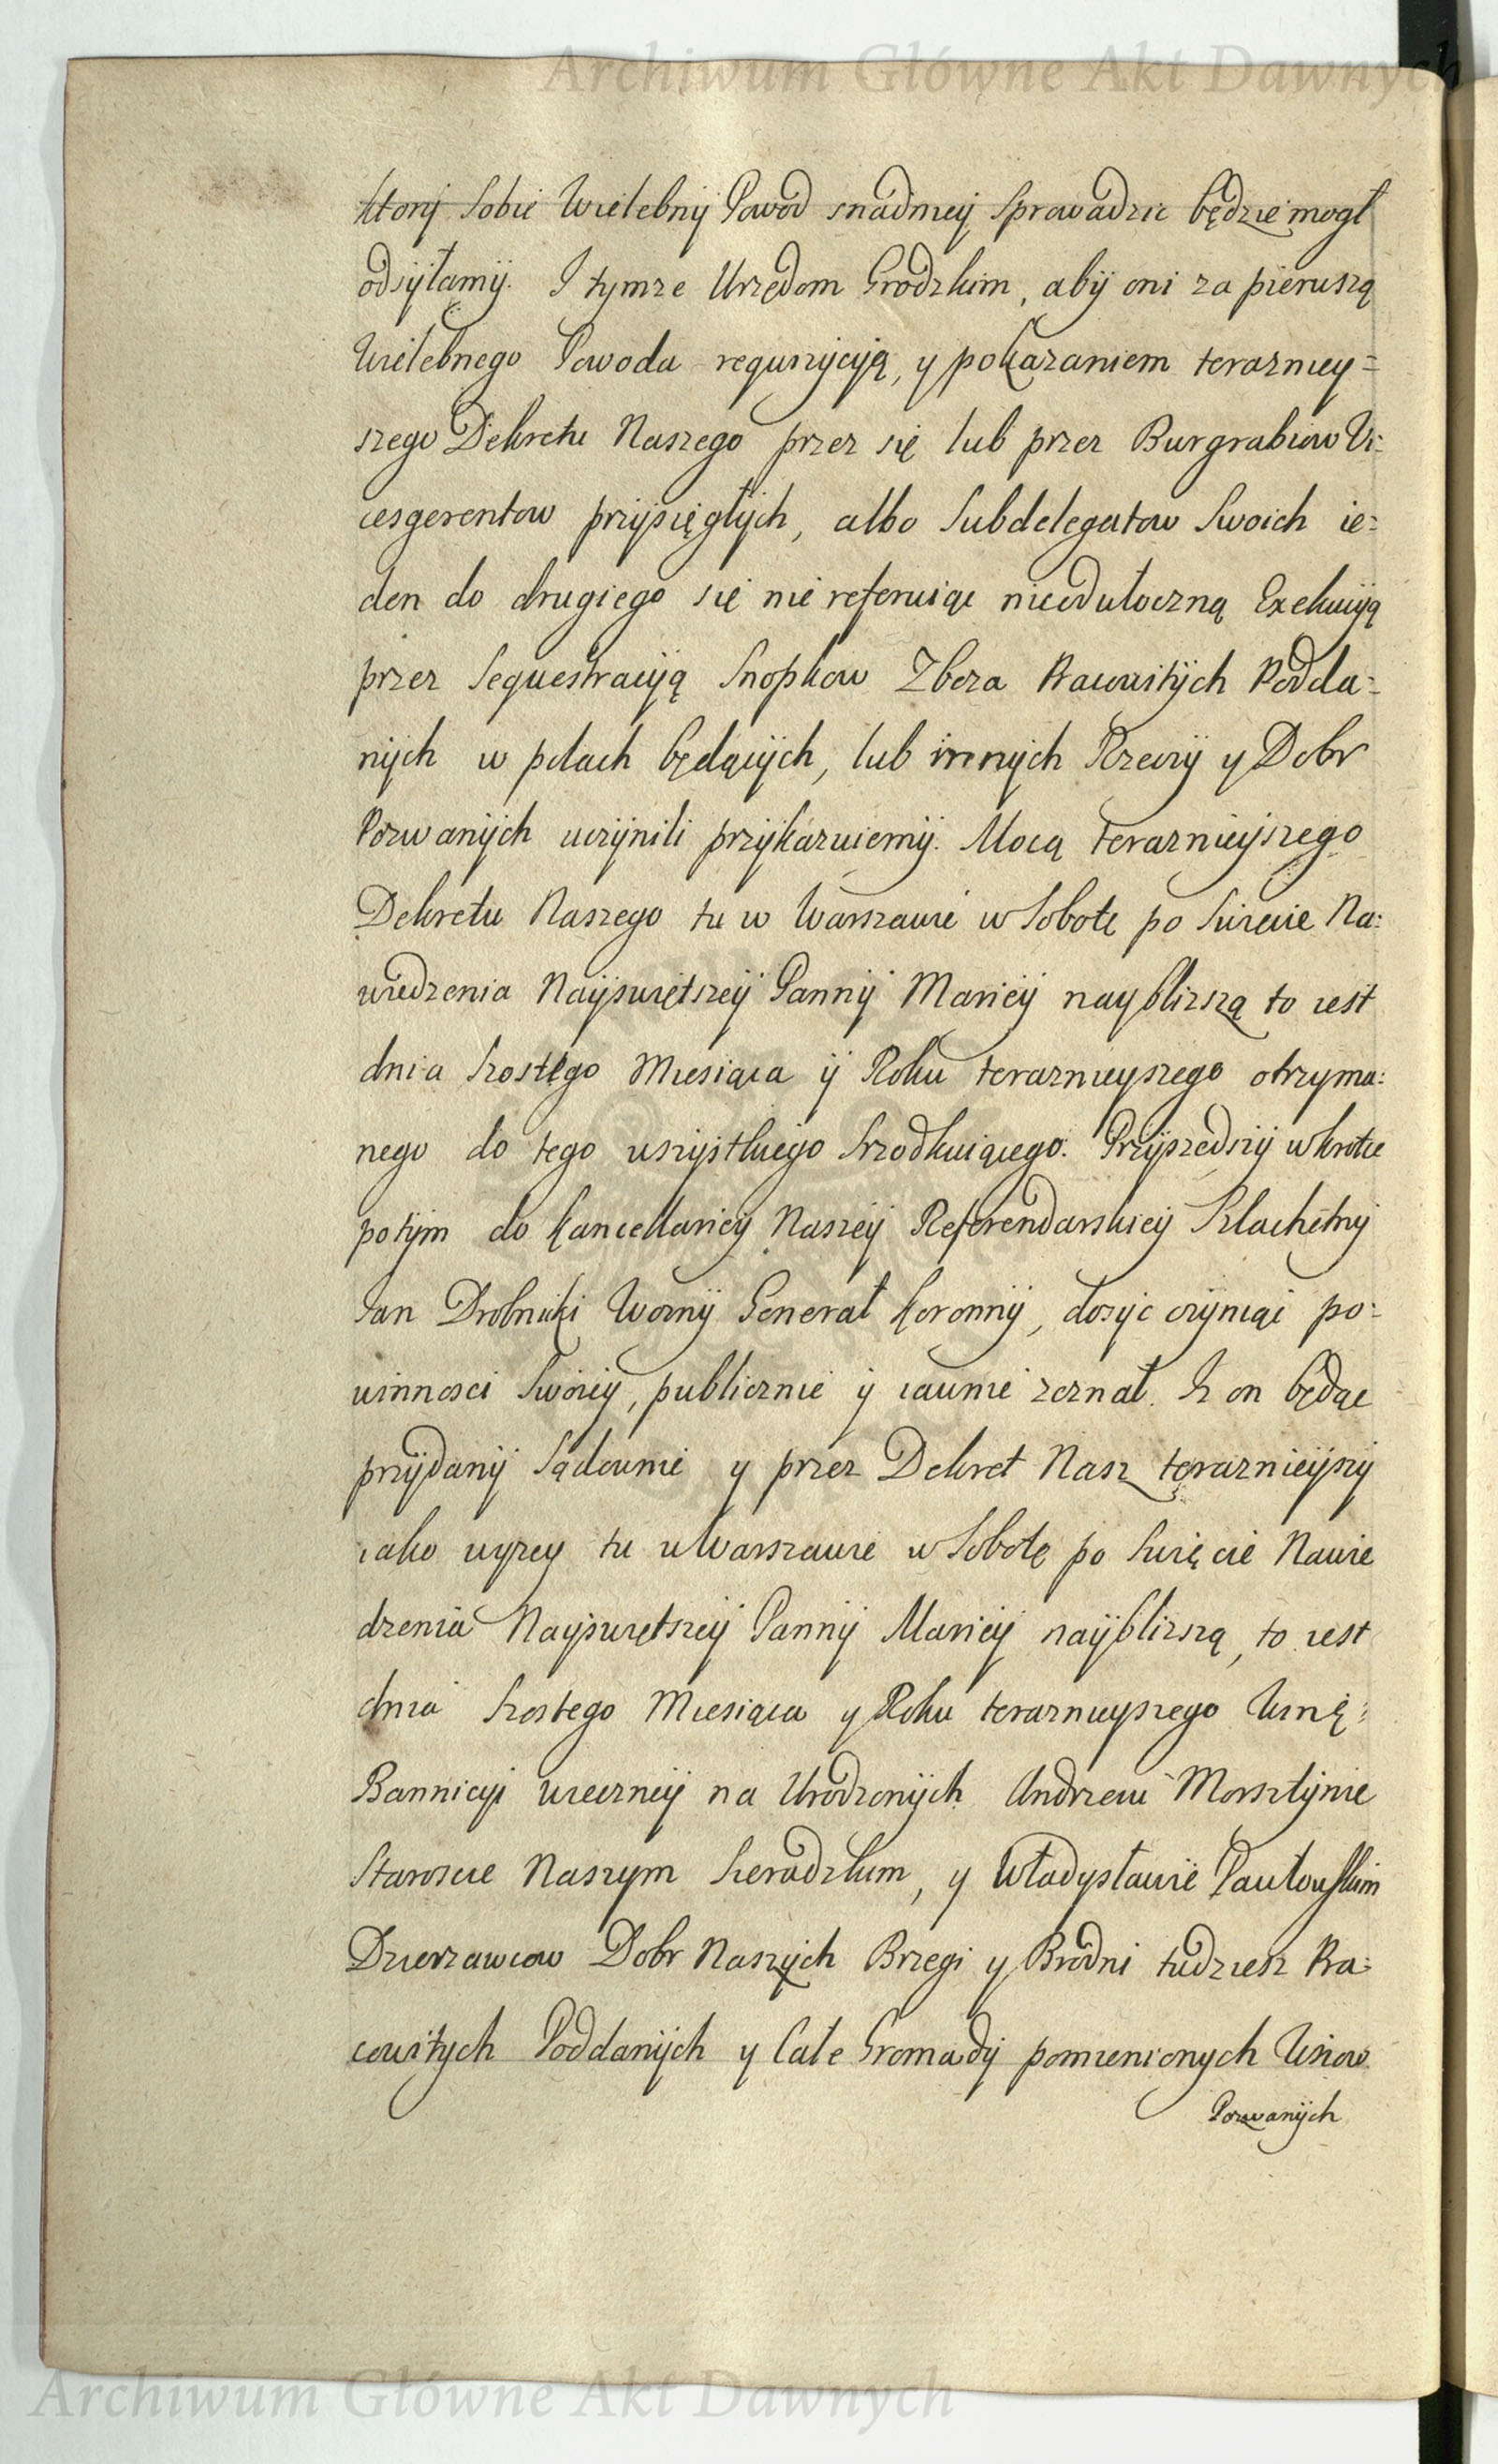 Archiwum Główne Akt Dawnych
ktory Sobie Wielebny Powod snadniey Sprowadzic będzie mogł
odsyłamy. I tymze Urzędom Grodzkim, aby oni za pierwszą
Wielebnego Powoda requizycyą, y pokazaniem terazniey=
szego Dekretu Naszego przez się lub przez Burgrabiow Vi=
cesgerentow przysięgłych, albo Subdelegatow Swoich ie=
den do drugiego się nie referuiąc nieodwłoczną Exekucyą
przez Sequestracyą Snopkow Zboza Pracowitych Podda=
nych w polach będących, lub innych Rzeczy y Dobr
Pozwanych uczynili przykazuiemy. Mocą terazniejszego
Dekretu Naszego tu w Warszawie w Sobotę po Swięcie Na=
wiedzenia Nayswiętszey Panny Mariey nayblizszą to iest
dnia Szostego Miesiąca y Roku terazniejszego otrzyma=
nego do tego wszystkiego Srzodkuiącego. Przyszedszy wkrotce
potym do Kancellariey Naszey Referendarskiey Szlachetny
Jan Drobnicki Wozny Generał Koronny, dosyc czyniąc po=
winnosci Swoiey, publicznie y iawnie zeznał. Iz on będąc
przydany Sądownie y przez Dekret Nasz terazniejszy
iako wyzey tu w Warszawie w Sobotę po Swięcie Nawie
dzenia Nayswiętszey Panny Mariey nayblizszą, to iest
dnia Szostego Miesiąca y Roku terazniejszego Winę
Bannicyi wieczney na Urodzonych Andrzeiu Morsztynie
Staroscie Naszym Sieradzkim, y Władysławie Pawłowskim
Dzierzawcow Dobr Naszych Brzegi y Brodni tudziesz Pra=
cowitych Poddanych y Całe Gromady pomienionych Wsiow
Pozwanych
Archiwum Główne Akt Dawnych